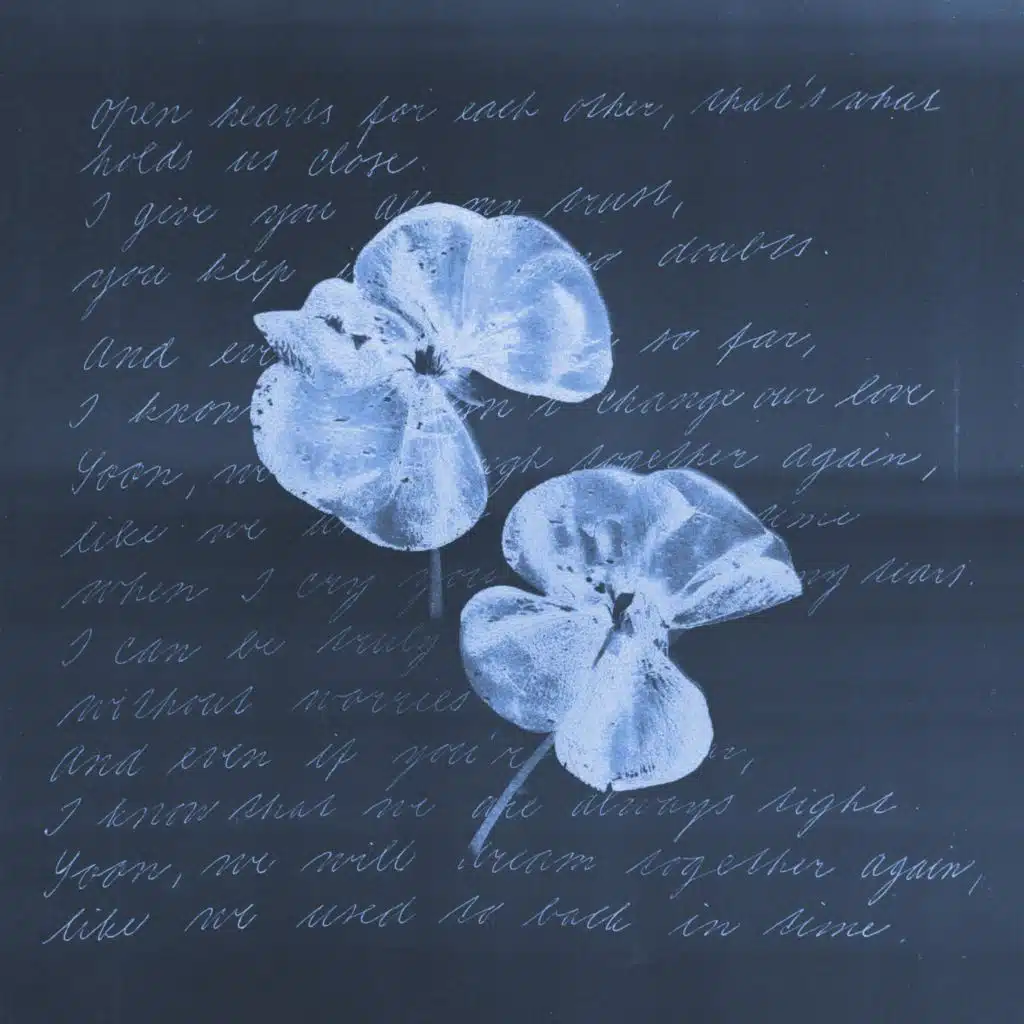 open hearts for each other, that's what
holds us close.
I give you all my trust,
you keep no doubts.
And so far,
I know change our love
Soon, together again,
like we time
when I cry my tears.
I can be truly
without worries
And even if
I know that we are always right.
Soon, we will dream together again,
like we used to back in time.